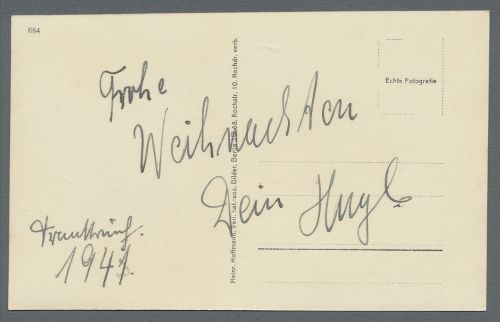 684
Frohe
Weihnachten
Dein
Frankreich.
1941
Echte Fotografie
Heinr. Hoffmann, Verl. nat.-soz. Bilder, Berlin SW 68, Kochstr. 10. Nachdr. verb.